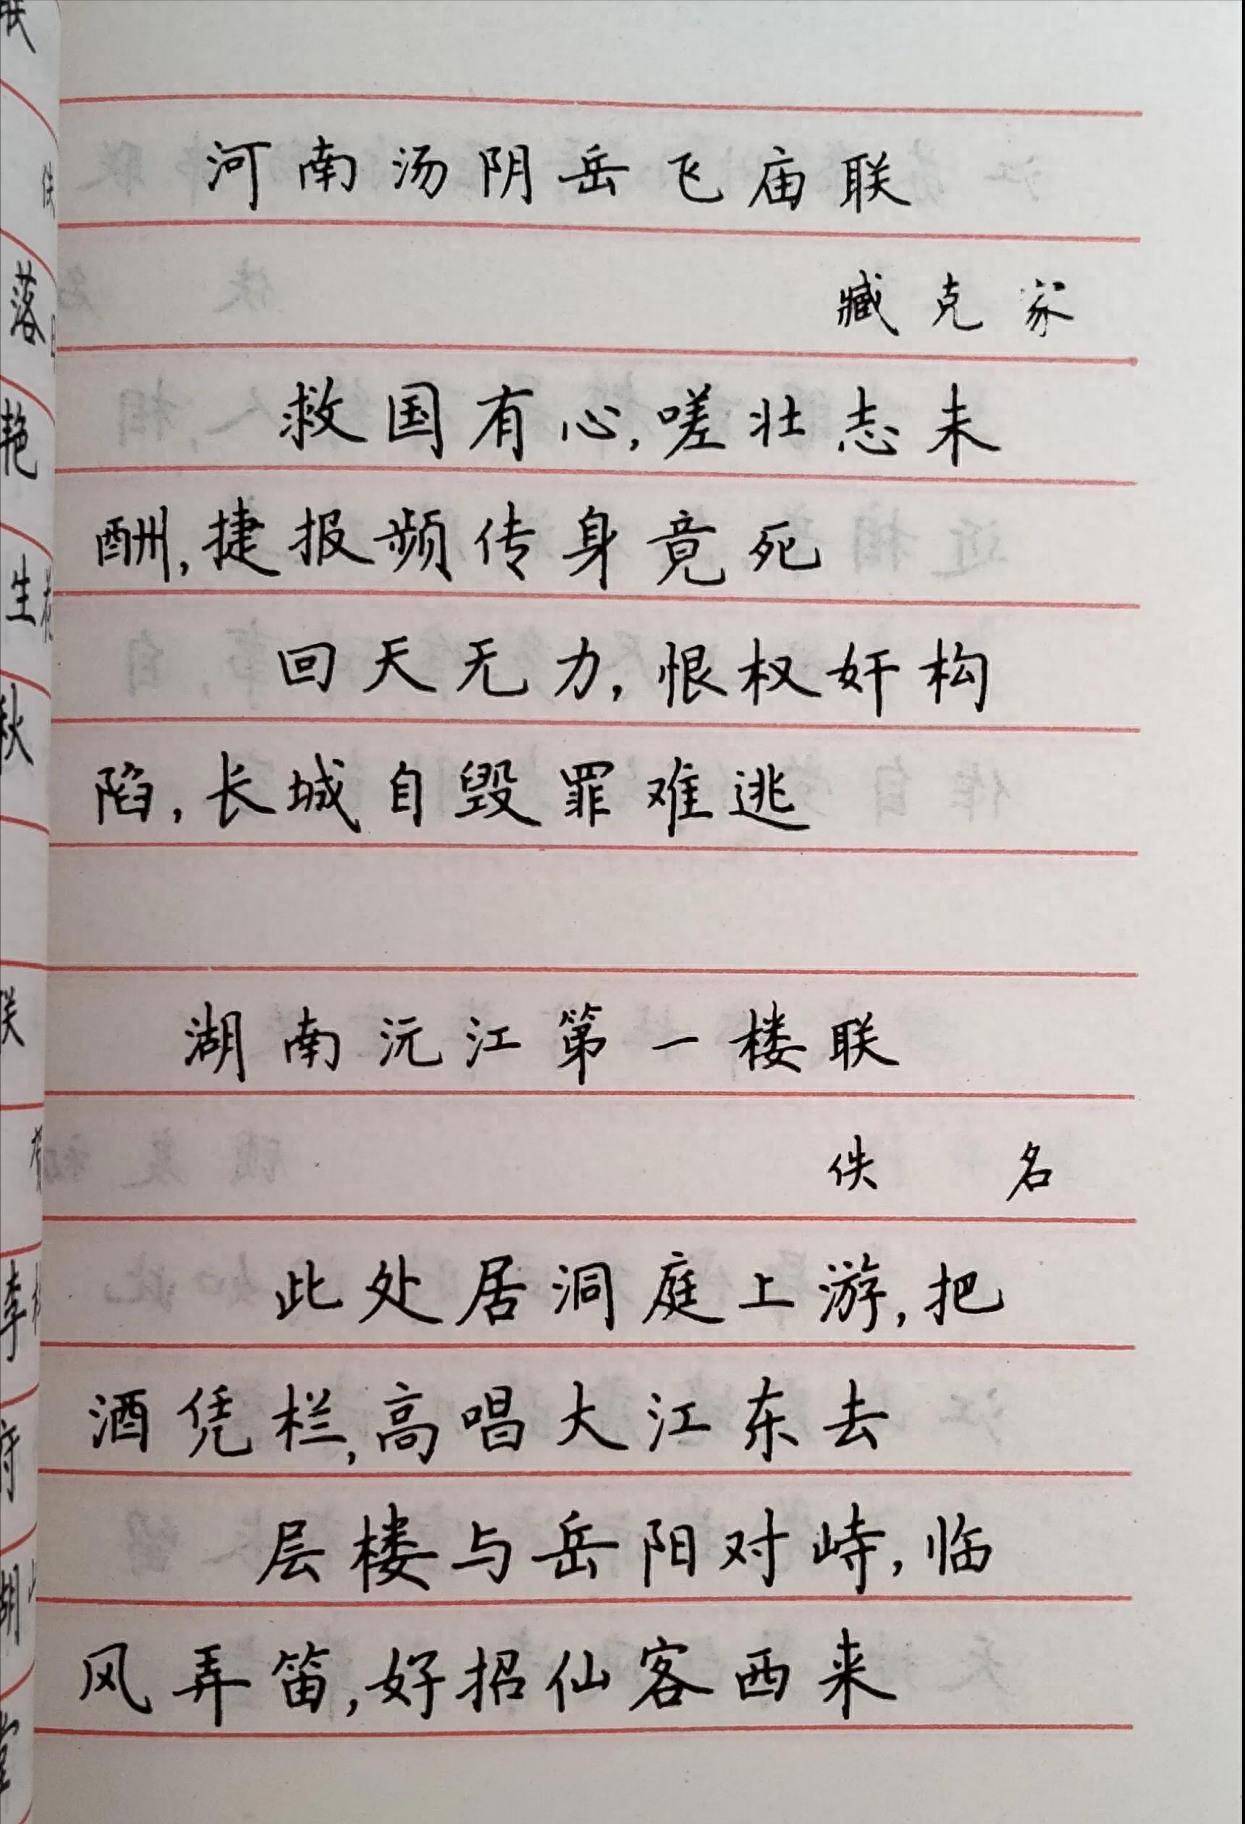 河南汤阴岳飞庙联
臧克家
救国有心,嗟壮志未
酬,捷报频传身竟死
回天无力,恨权奸构
陷,长城自毁罪难逃
湖南沅江第一楼联
佚 名
此处居洞庭上游,把
酒凭栏,高唱大江东去
层楼与岳阳对峙,临
风弄笛,好招仙客西来